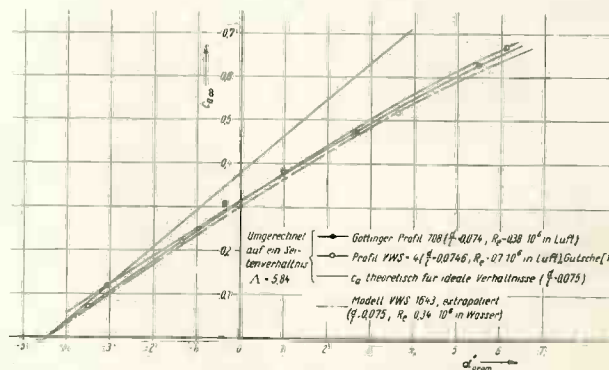 0,7
0,6
0,5
0,4
0,2
0,1
c a∞
Umgerechnet
auf ein Sei-
tenverhältnis
Λ = 5,84
Göttinger Profil 708 (d/l=0,074, Re=0,38 10⁶ in Luft)
Profil VWS-4 (d/l=0,0746, Re=0,7 10⁶ in Luft), Gutsche
ca theoretisch für ideale Verhältnisse (d/l=0,075)
Modell VWS 1643, extrapoliert
(d/l=0,075, Re 0,34 10⁶ in Wasser)
-3
-2
-1
0
1
2
3
5
6
7
α° geom